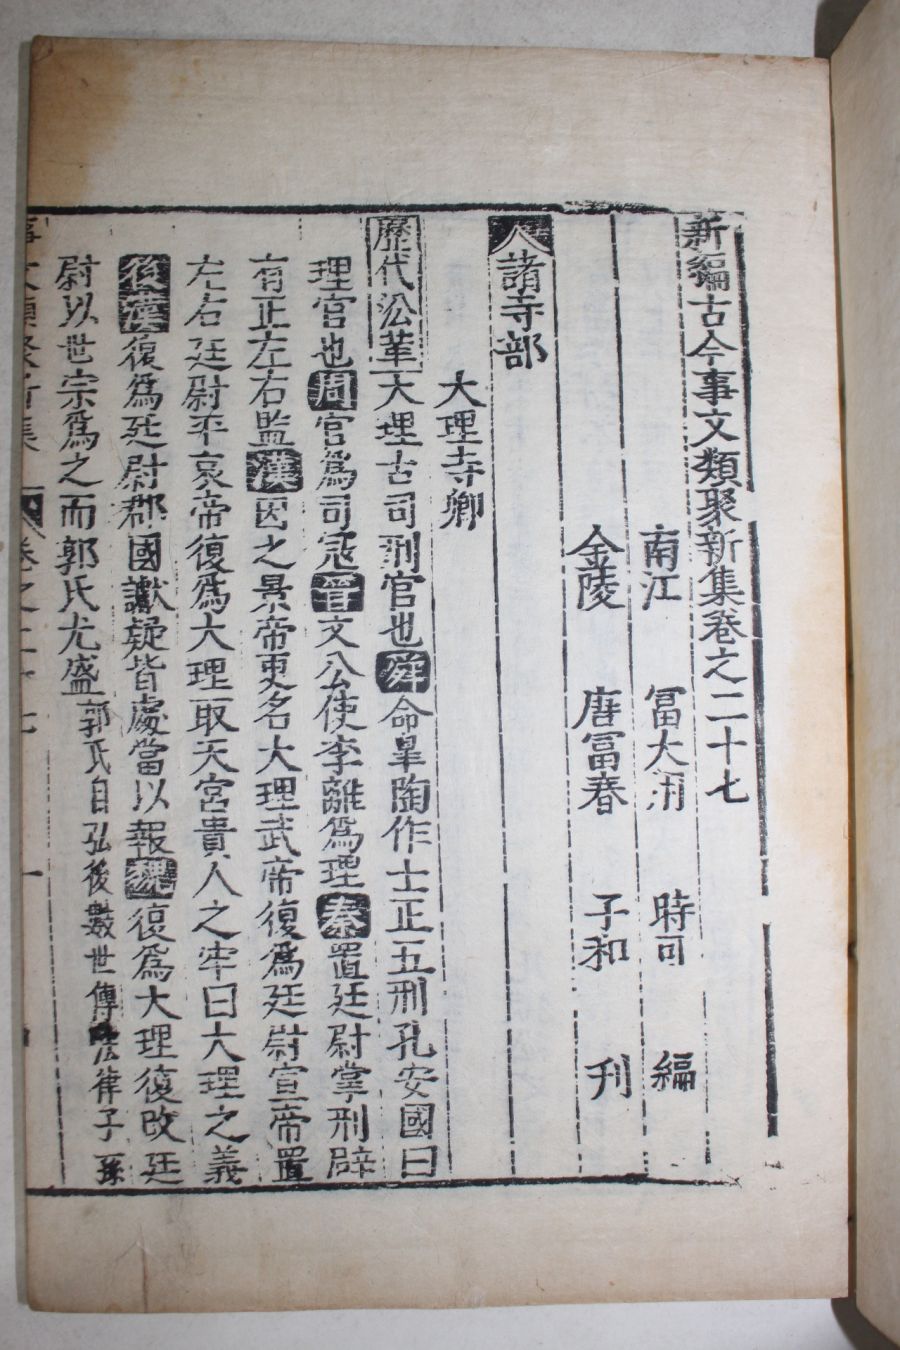 新編古今事文類聚新集卷之二十七
南江 冨大用 時可 編
金陵 唐冨春 子和 刊
諸寺部
大理寺卿
歷代沿革大理古司刑官也舜命皐陶作士正五刑孔安國曰
理官也周官爲司冦晉文公使李離爲理秦置廷尉掌刑辟
有正左右監漢因之景帝更名大理武帝復爲廷尉宣帝置
左右廷尉平哀帝復爲大理取天官貴人之牢曰大理之義
後漢復爲廷尉郡國讞疑皆處當以報魏復爲大理復改廷
尉以世宗爲之而郭氏尤盛郭氏自弘後數世傳法律子孫
事文類聚新集 卷之二十七 一